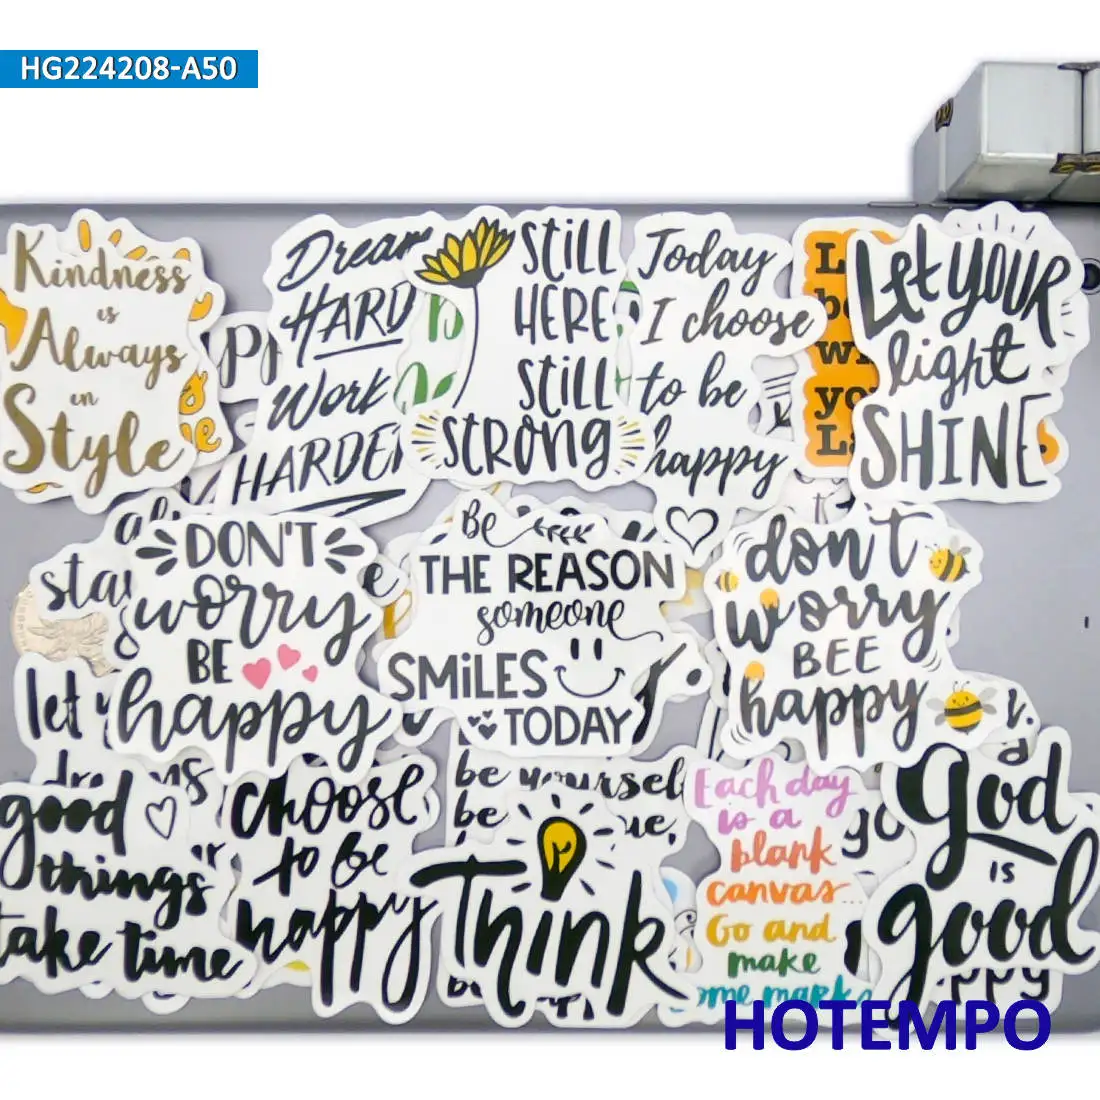 HG224208-A50
Kindness
is
Always
en
Style
Dream
HARD
Work
HARDER
STILL
HERE
STILL
STRONG
Today
I choose
to be
happy
Let YOUR
light
SHINE
DON'T
worry
BE
happy
Be
THE REASON
someone
SMILES
TODAY
don't
worry
BEE
happy
stay
let
good
things
take time
choose
to be
happy
be yourself
be
Think
Each day
is a
blank
canvas...
Go and
make
ome marks
God
IS
good
HOTEMPO